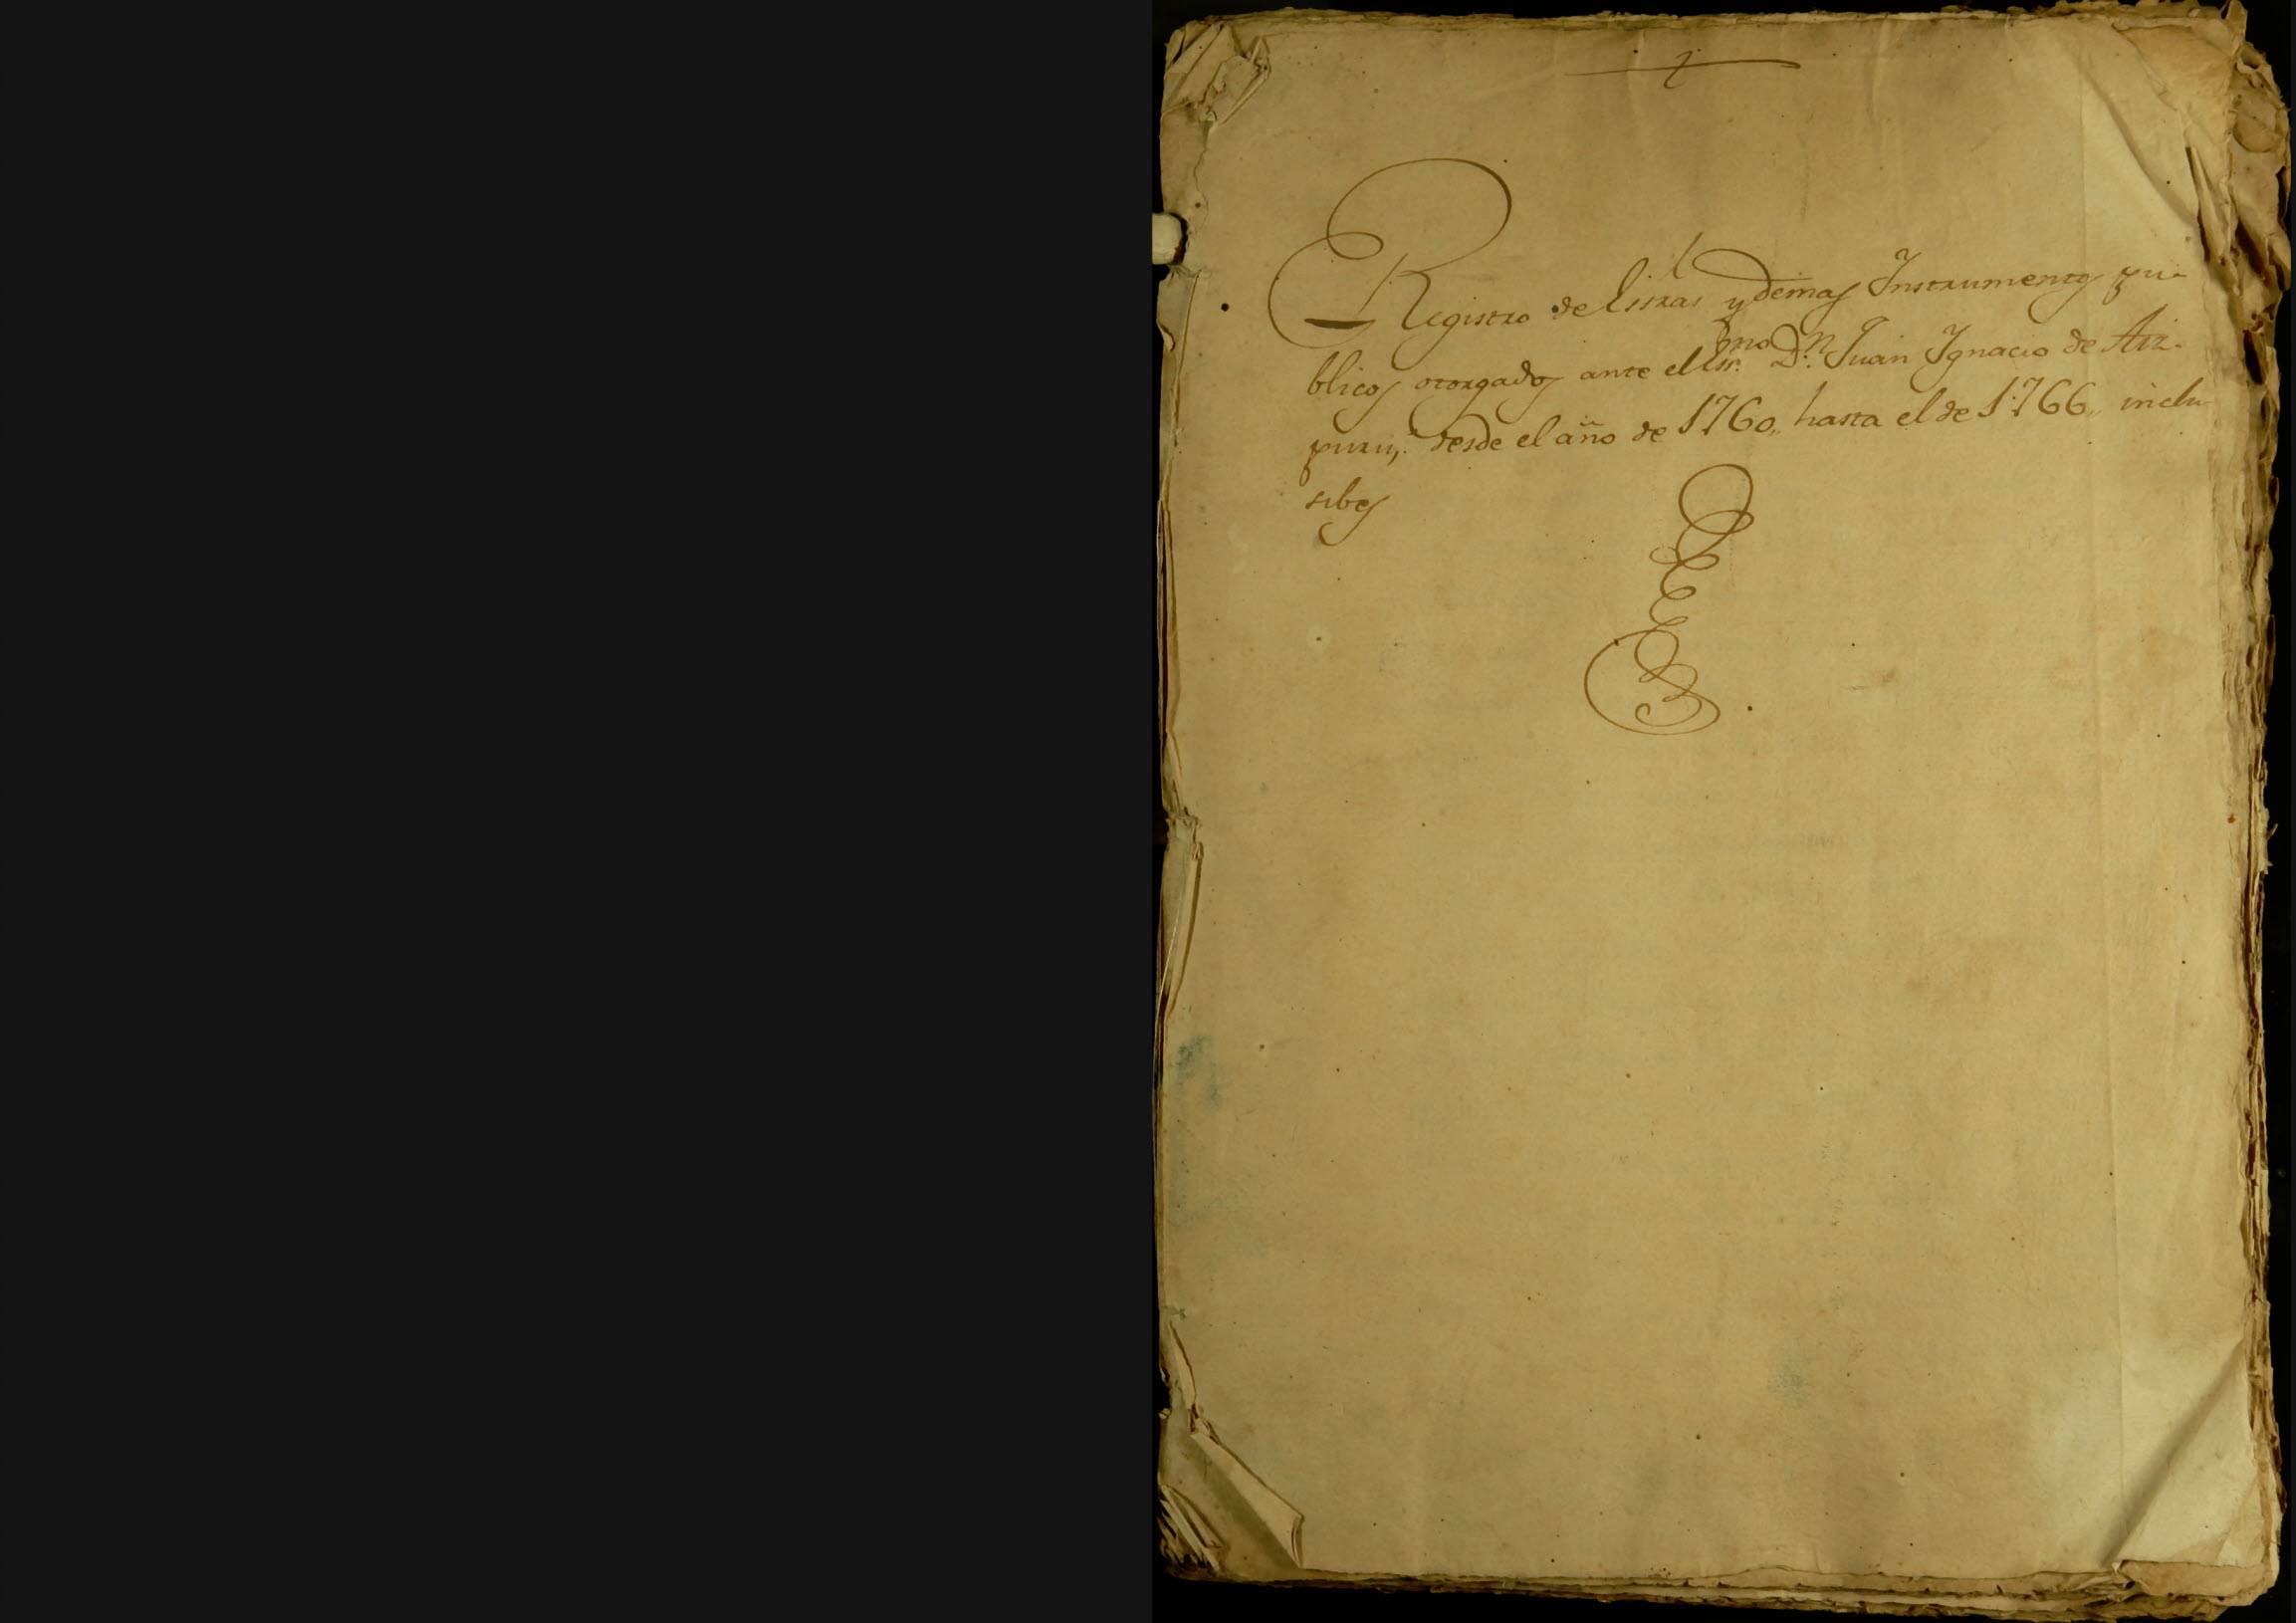 Registro de Essras y demas Instrumentos pu-
blicos otorgados ante el Ess.no D.n Juan Ygnacio de Aiz-
puru, desde el año de 1760,, hasta el de 1766,, inclu
sibes